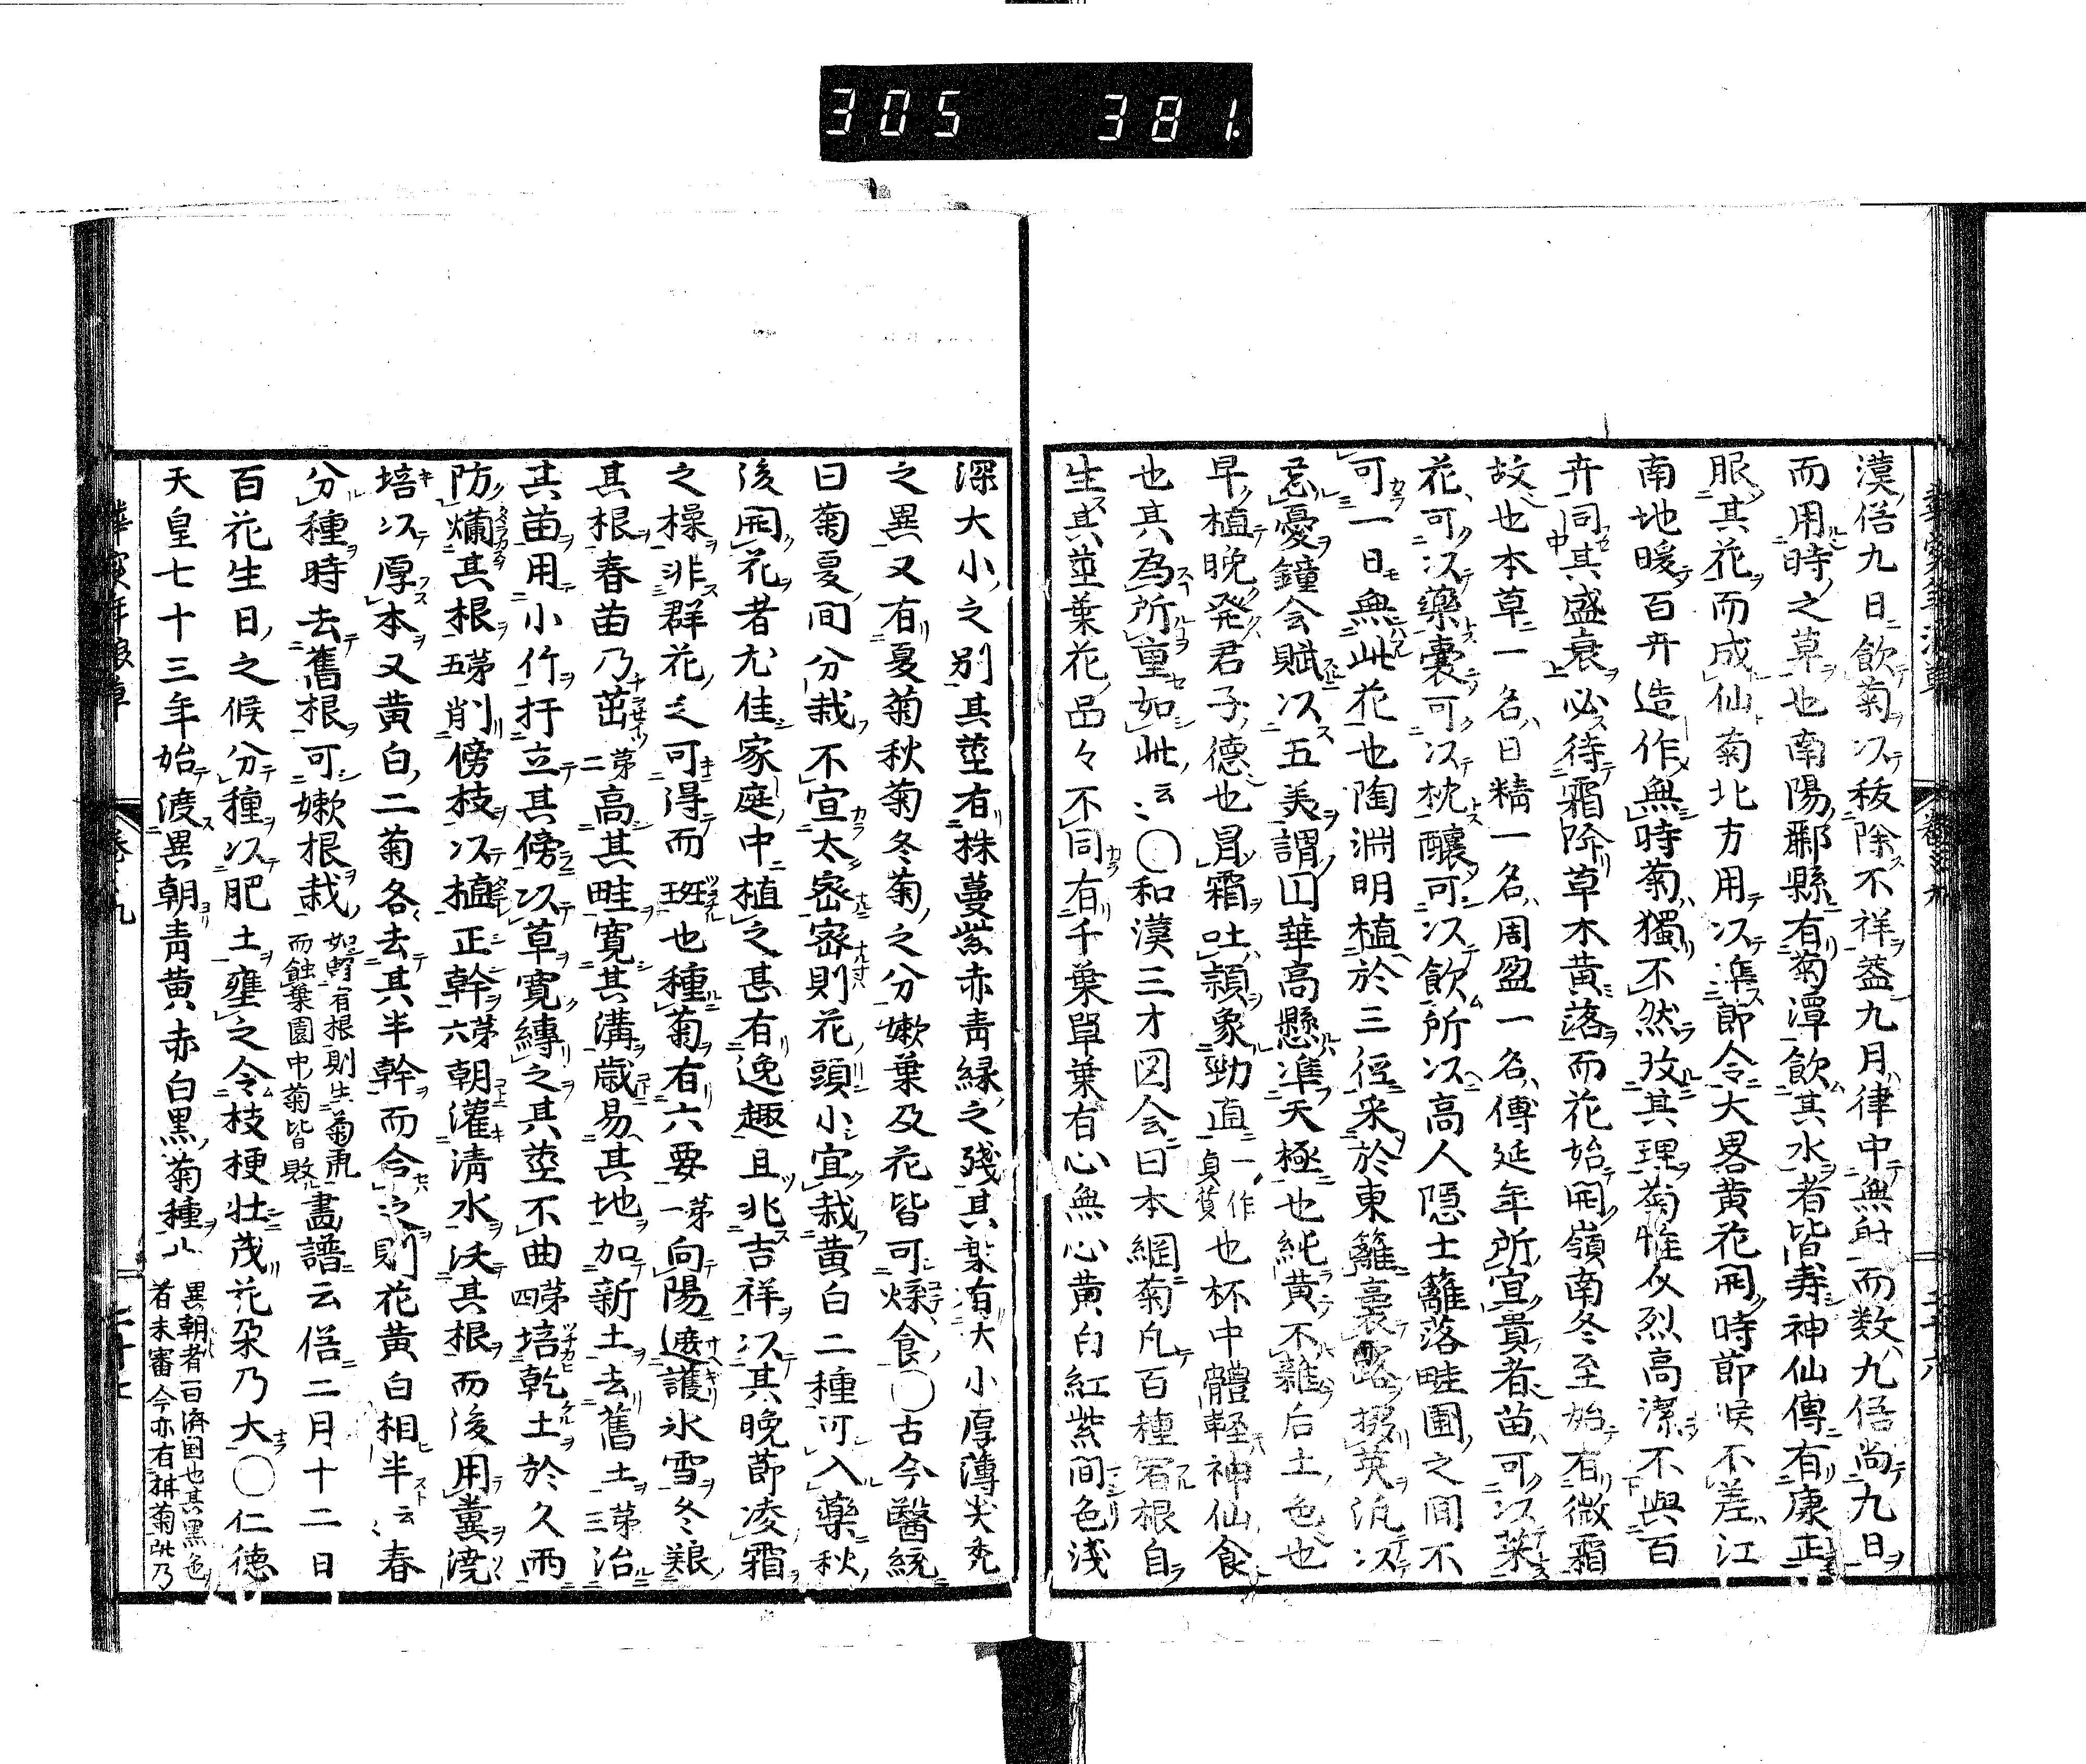 305 381.
漢俗九日飲菊以秡除不祥蓋九月律中無射而数九俗尚九日
而用時之草也南陽酈縣有菊潭飲其水者皆壽神仙傳有康
服其花而成仙菊北方用以準節令大畧黄花開時節候不差江
南地暖百卉造作無時菊獨不然攷其理菊性介烈高潔不與百
卉同其盛衰必待霜降草木黄落而花始開嶺南冬至始有微霜
故也本草一名日精一名周盈一名傅延年所宜貴者苗可以菜
花可以藥囊可以枕釀可以飲所以高人隱士籬落畦圃之間不
可一日無此花也陶淵明植於三徑采於東籬裛露掇英汎以
忘憂鐘会賦以五美謂圓華高懸準天極也純黄不雜后土色也
早植晩発君子德也冒霜吐頴象勁直一作貞質也杯中體軽神仙食
也其為所重如此云〻○和漢三才図会曰本綱菊凡百種宿根自
生其莖葉花品々不同有千葉單葉有心無心黄白紅紫間色淺
深大小之別其莖有株蔓紫赤青緑之殘其葉有大小厚薄尖禿
之異又有夏菊秋菊冬菊之分嫩葉及花皆可煠食○古今醫統
曰菊夏間分栽不宜太密密則花頭小宜栽黄白二種可入藥秋
後開花者尤佳家庭中植之甚有逸趣且兆吉祥以其晩節凌霜
之操非群花之可得而班也種菊有六要一第向陽遮護氷雪冬䊵
其根春苗乃茁二第高其畦寛其溝歳易其地加新土去舊土三第治
其苗用小竹扦立其傍以草寛縳之其莖不曲四第培乾土於久雨
防爛其根五第削傍枝以植正幹六第朝灌清水沃其根而後用糞澆
培以厚本又黄白二菊各去其半幹而合之則花黄白相半云〻春
分種時去舊根可嫩根栽如有根則生菊虎而蝕葉園中菊皆敗畵譜云俗二月十二日
百花生日之候分種以肥土壅之令枝梗壮茂花朶乃大○仁德
天皇七十三年始渡異朝青黄赤白黒菊種八異朝者百濟国也其黒色者未審今亦有耕菊此乃